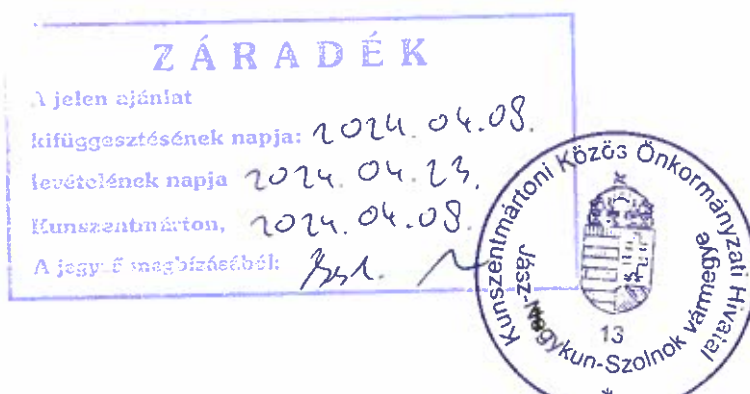 ZÁRADÉK
A jelen ajánlat
kifüggesztésének napja: 2024. 04.08.
levételének napja 2024. 04.23.
Kunszentmárton, 2024. 04.08.
A jegyző megbízásából:
Kunszentmártoni Közös Önkormányzati Hivatal
Jász-Nagykun-Szolnok vármegye
13
*